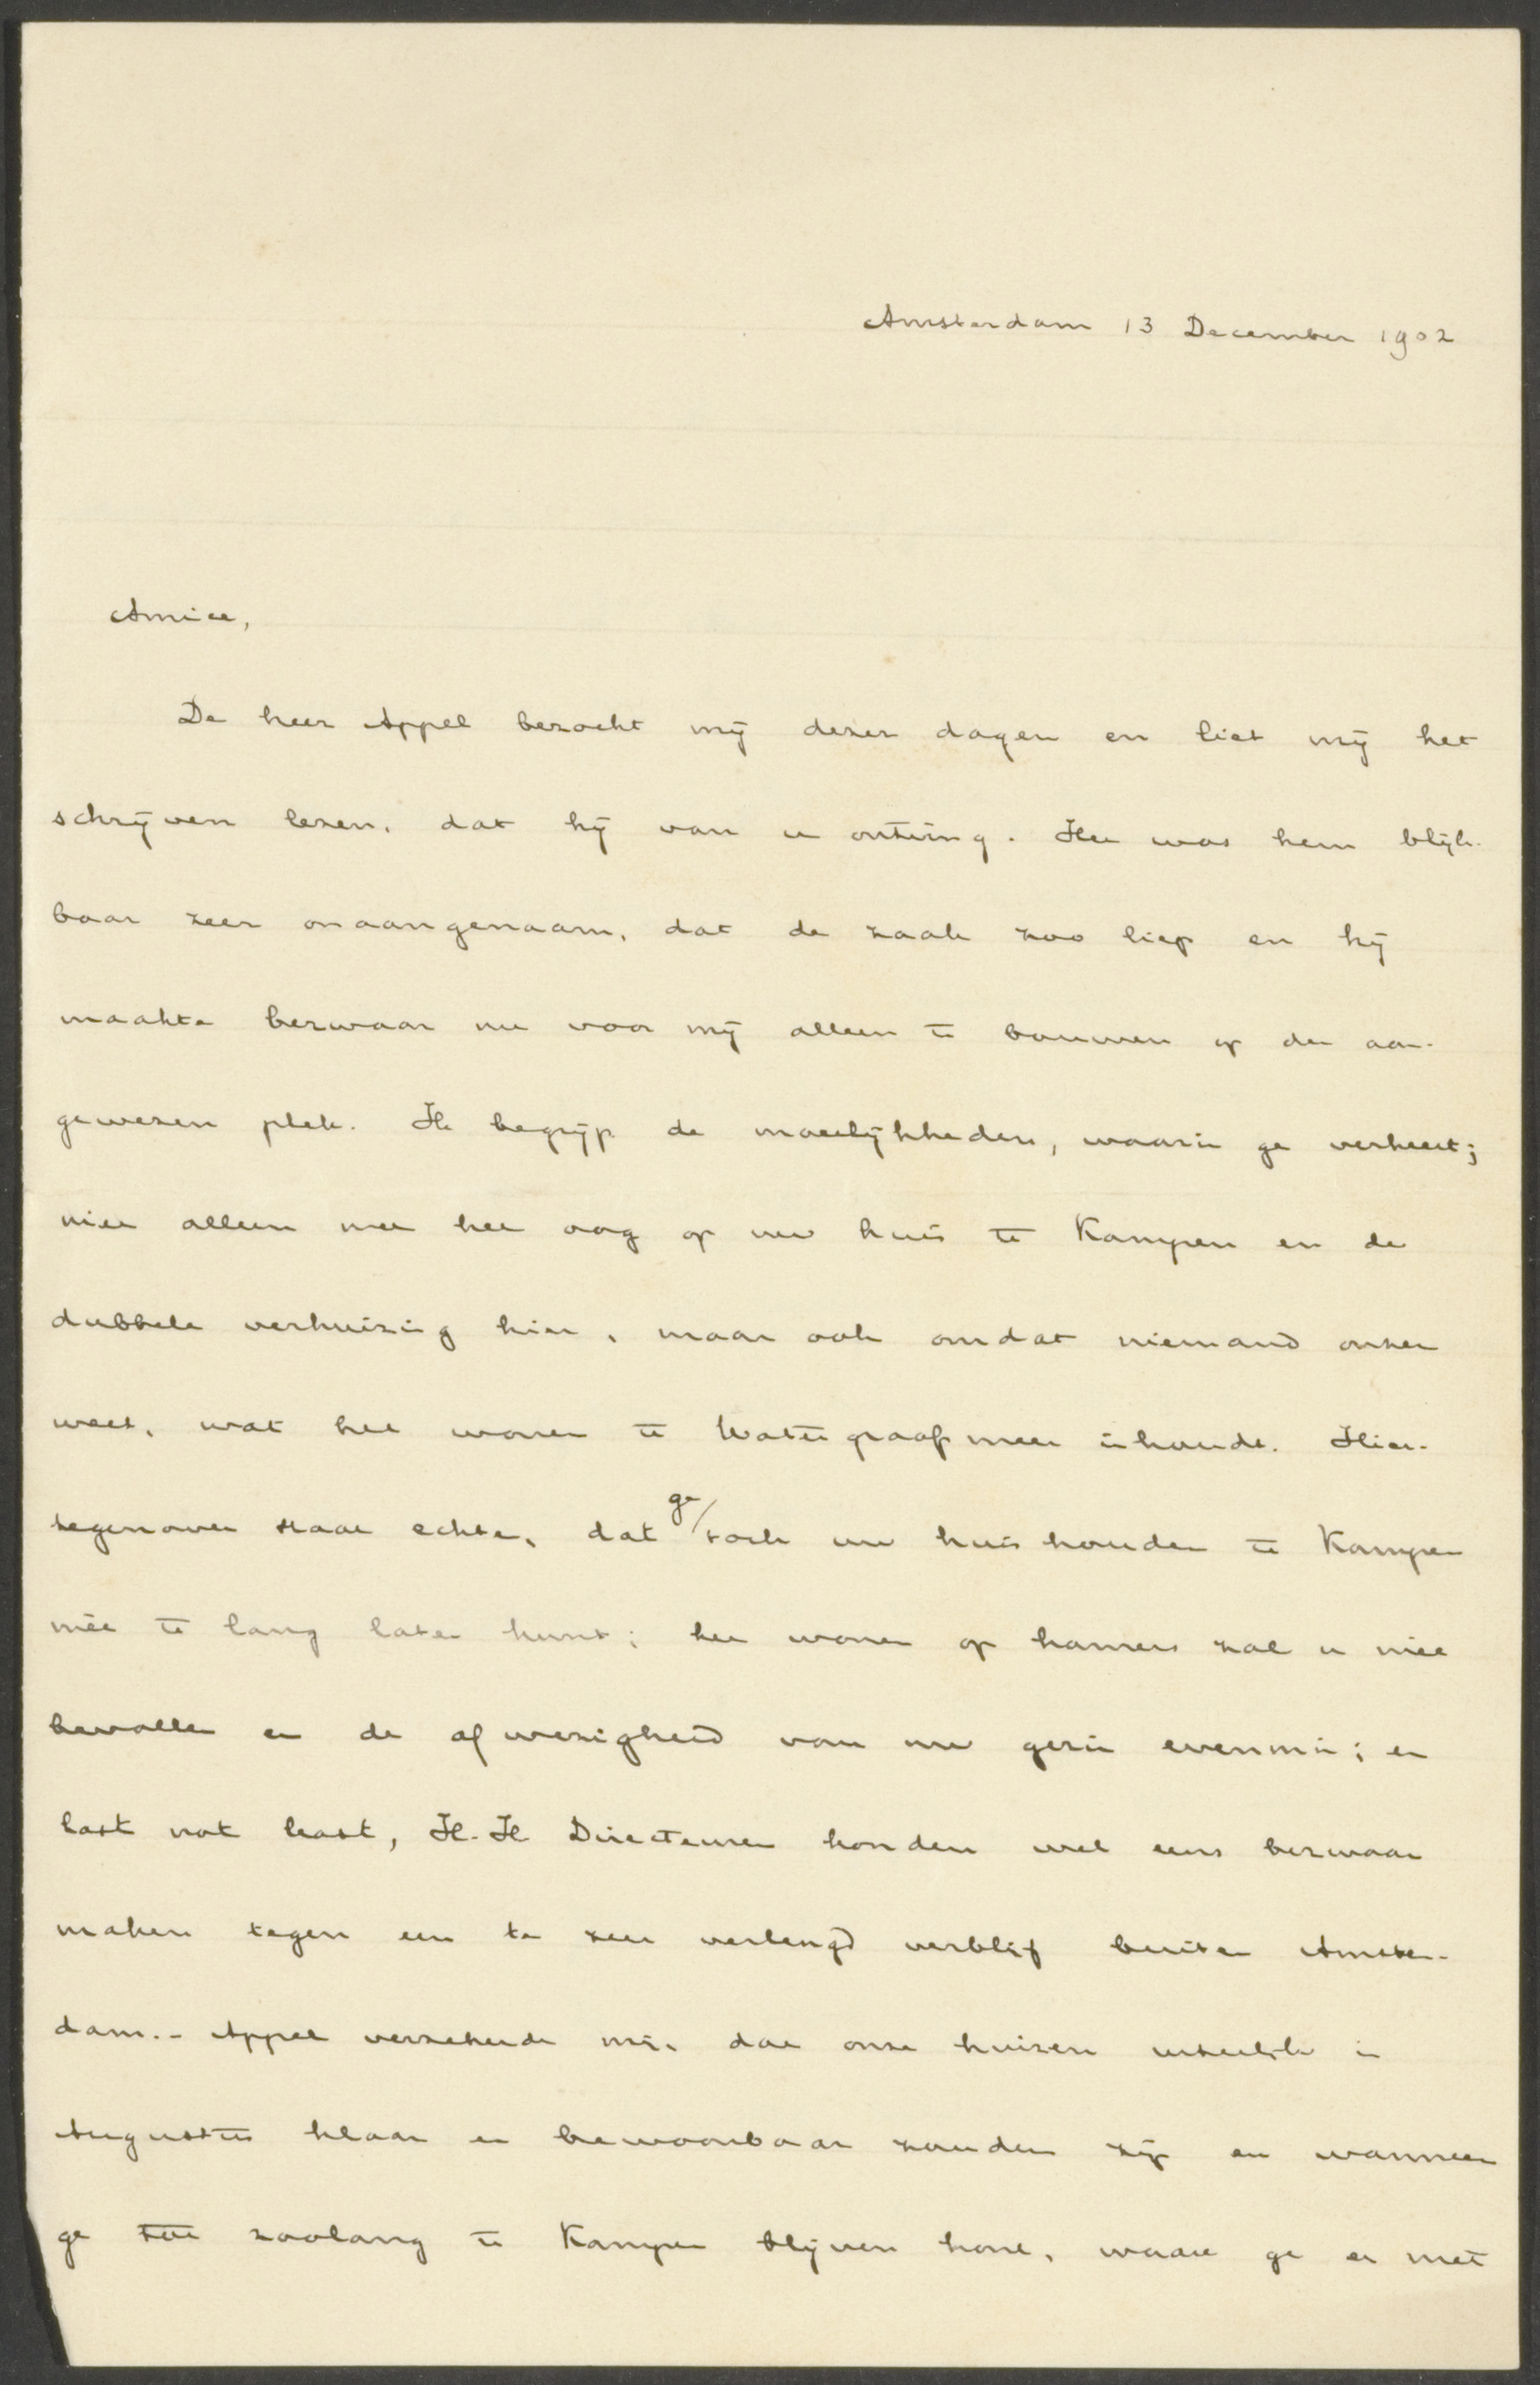 Amsterdam 13 December 1902
Amice,
De heer Appel bezocht mij dezer dagen en liet mij het
schrijven lezen, dat hij van u ontving. Het was hem blijk-
baar zeer onaangenaam, dat de zaak zoo liep en hij
maakte bezwaar nu voor mij alleen te bouwen op den aan-
gewezen plek. Ik begrijp de moeilijkheden, waarin ge verkeert;
niet alleen met het oog op uw huis te Kampen en de
dubbele verhuizing hier, maar ook omdat niemand onzer
weet, wat het wonen te Watergraafsmeer inhoudt. Hier-
tegenover staat echter, dat ge toch uw huishouden te Kampen
niet te lang laten kunt; het wonen op kamers zal u niet
bevallen en de afwezigheid van uw gezin evenmin; en
last not least, H.H. Directeuren konden wel eens bezwaar
maken tegen een te zeer verlengd verblijf buiten Amster-
dam. - Appel verzekerde mij, dat onze huizen uiterlijk in
Augustus klaar en bewoonbaar zouden zijn en wanneer
ge tot zoolang te Kampen blijven kont, waart ge er met